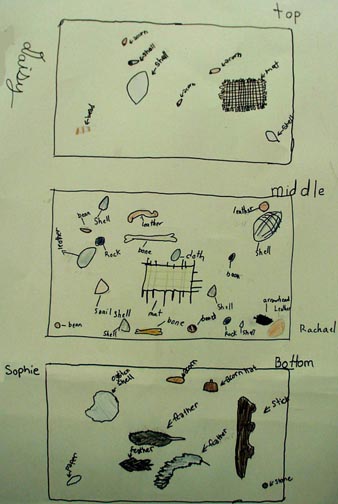 top
daisy
acorn
shell
shell
acorn
acorn
mat
bead
shell
middle
bean
shell
leather
leather
leather
Rock
bone
cloth
shell
bean
snail shell
shell
arrowhead
leather
mat
bean
shell
bone
bead
Rock
shell
Rachael
Sophie
Bottom
shell
acorn
acorn hat
feather
stick
feather
feather
stone